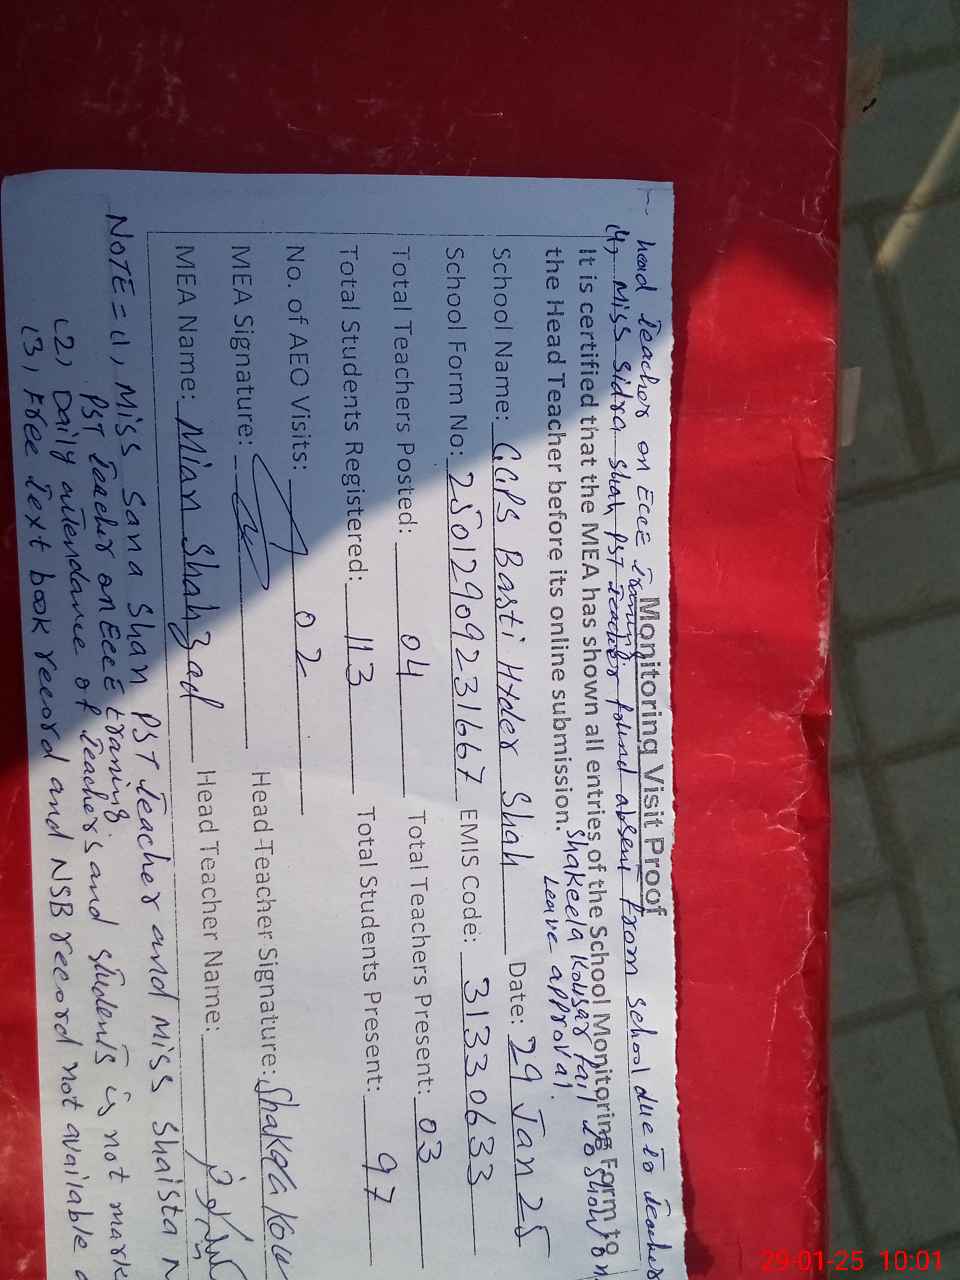 head teacher on Ecce traning.
(4) Miss Sidra Shah PST Teacher found absent from school due to Teacher
Monitoring Visit Proof
It is certified that the MEA has shown all entries of the School Monitoring Form to
the Head Teacher before its online submission.
Shakeela Kousar fail to show on
Leave approval.
School Name: GGPS Basti Hyder Shah Date: 29 Jan 25
School Form No: 25012909231667 EMIS Code: 31330633
Total Teachers Posted: 04 Total Teachers Present: 03
Total Students Registered: 113 Total Students Present: 97
No. of AEO Visits: 02
MEA Signature: Head-Teacher Signature: Shakeela Kou
MEA Name: Mian Shahzad Head Teacher Name:
NOTE = (1) Miss Sana Shan PST teacher and Miss Shaista N
PST Teacher on Ecc E traning.
(2) Daily attendance of Teachers and students is not mark
(3) Free Text book record and NSB record not available
29-01-25 10:01